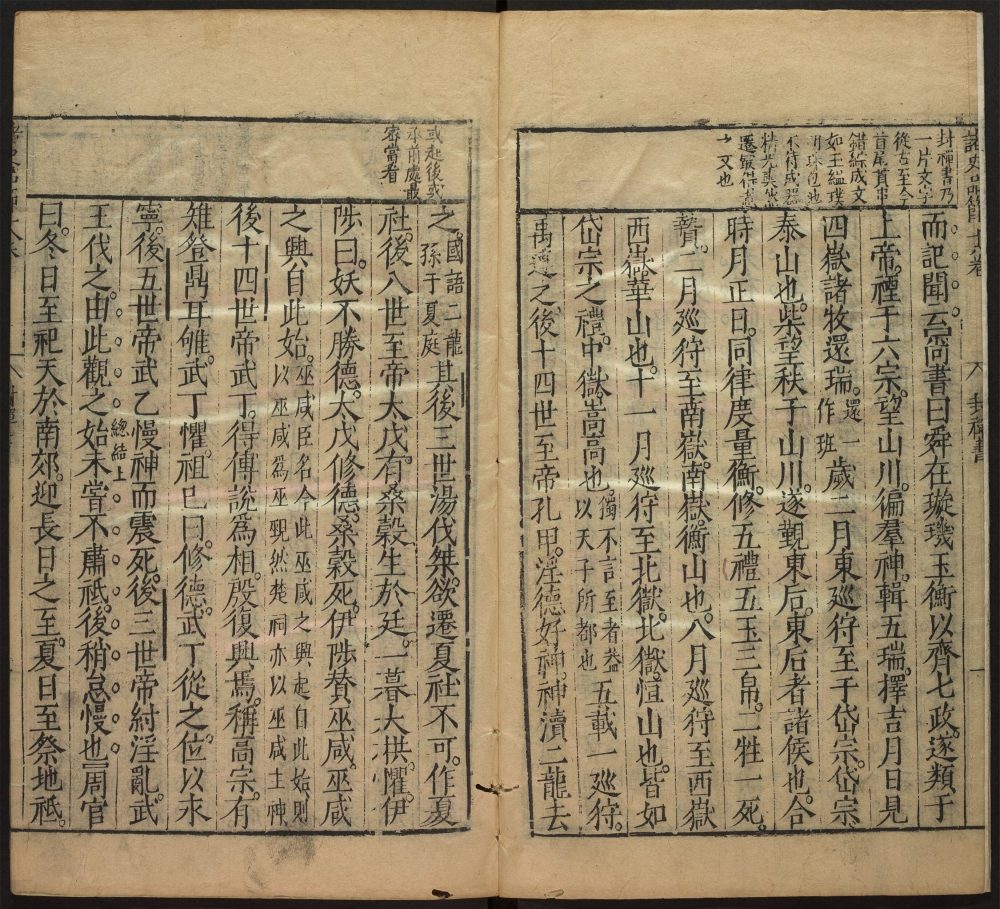 封禪書乃
一片文字
從古至今
首尾貫串
錯綜成文
如王縕璞
不待成器
而記聞云尚書曰舜在璇璣玉衡以齊七政遂類于
上帝禋于六宗望山川徧羣神輯五瑞擇吉月日見
四嶽諸牧還瑞還一作班歲二月東巡狩至于岱宗岱宗
泰山也柴望秩于山川遂覲東后東后者諸侯也合
時月正日同律度量衡修五禮五玉三帛二牲一死
贄二月巡狩至南嶽南嶽衡山也八月巡狩至西嶽
西嶽華山也十一月巡狩至北嶽北嶽恒山也皆如
岱宗之禮中嶽嵩高也獨不言至者蓋以天子所都也五載一巡狩
禹遵之後十四世至帝孔甲淫德好神神瀆二龍去
或起後或
承前處最
密當看
之國語二龍孫于夏庭其後三世湯伐桀欲遷夏社不可作夏
社後八世至帝太戊有桑穀生於廷一暮大拱懼伊
陟曰妖不勝德太戊修德桑穀死伊陟賛巫咸巫咸
之興自此始巫咸臣名今此巫咸之興起自此始則以巫咸爲巫覡然楚祠亦以巫咸主神
後十四世帝武丁得傅說爲相殷復興焉稱高宗有
雉登鼎耳雊武丁懼祖巳曰修德武丁從之位以永
寧後五世帝武乙慢神而震死後三世帝紂淫亂武
總結上
王伐之由此觀之始未嘗不肅祗後稍怠慢也周官
曰冬日至祀天於南郊迎長日之至夏日至祭地祗